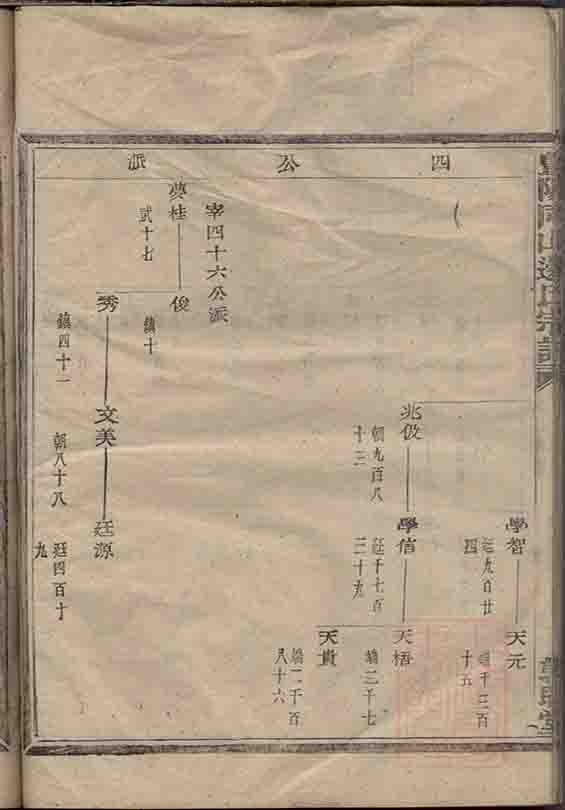 四公派
學智
廷九百廿
四
天元
千三百
十五
兆伋
朝九百八
十三
學信
廷千七百
三十九
天梧
三千七
天貴
二千百
八十六
宰四十六公派
夢桂
武十七
俊
鎮十
秀
鎮四十一
文美
朝八十八
廷源
廷四百十
九